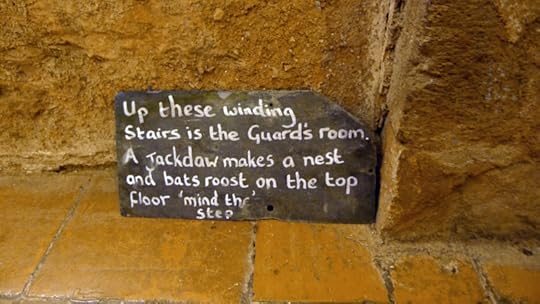 Up these winding
Stairs is the Guard's room.
A Jackdaw makes a nest
and bats roost on the top
floor 'mind the'
step